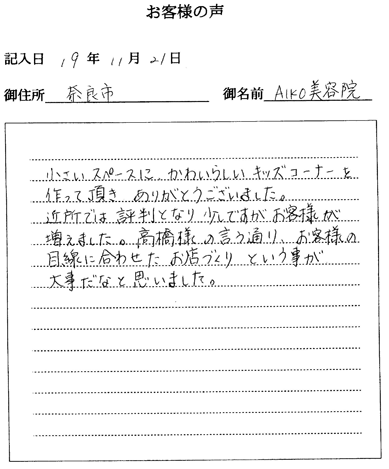 お客様の声
記入日 19年11月21日
御住所 奈良市 御名前 AIKO美容院
小さいスペースに かわいらしい キッズコーナーを
作って頂き ありがとうございました。
近所では 評判となり 少しですが お客様が
増えました。高橋様の言う通り、お客様の
目線に合わせた お店づくり という事が
大事だなと思いました。